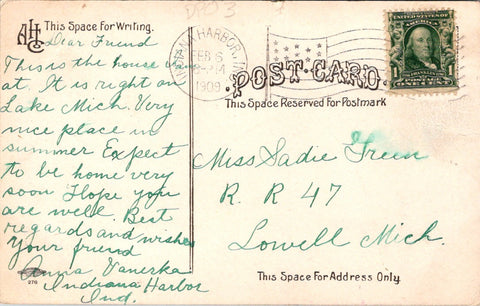 DPO 3
AHC This Space For Writing.
Dear Friend
This is the house I am
at. It is right on
Lake Mich. Very
nice place in
summer Expect
to be home very
soon Hope you
are well. Best
regards and wishes
Your friend
Anna Vanerka
Indiana Harbor
Ind.
276
INDIANA HARBOR, IND.
FEB 6
1909
UNITED STATES OF AMERICA
1
FRANKLIN
ONE CENT
POST CARD
This Space Reserved for Postmark
Miss Sadie Green
R. R 47
Lowell Mich.
This Space For Address Only.